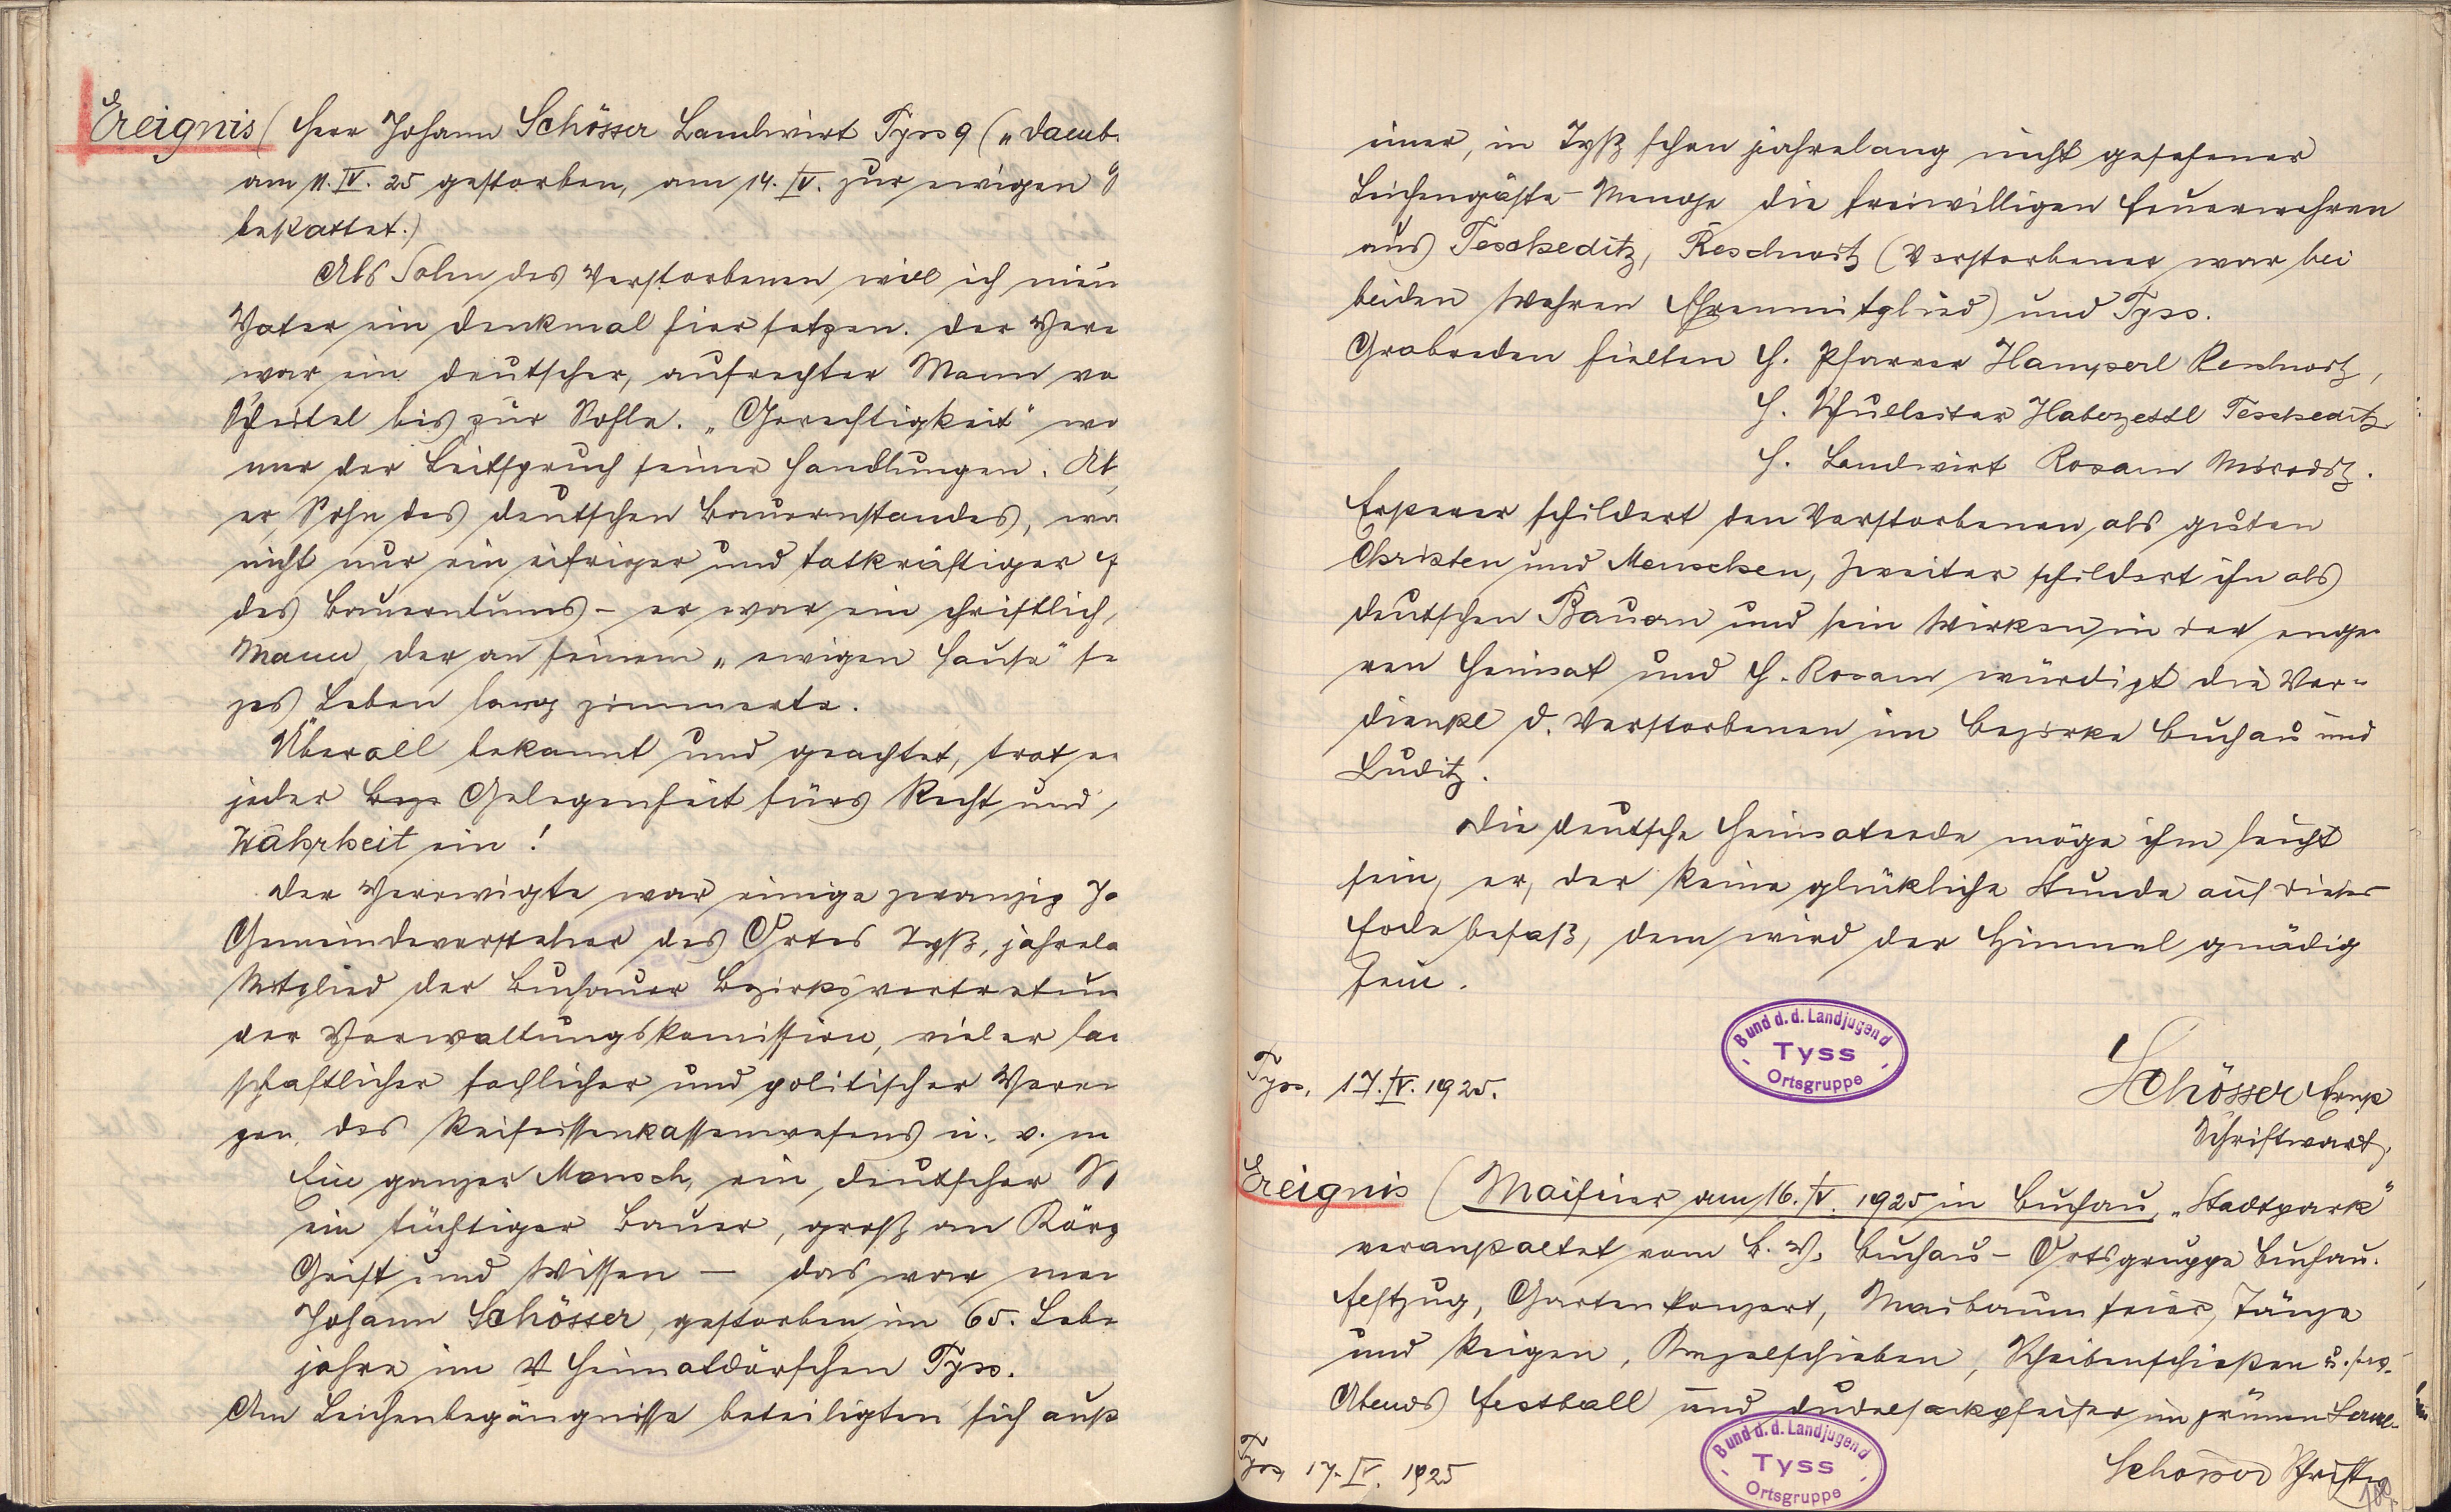 Ereignis (Herr Johann Schösser Landwirt Tyss 9 („Daeub.
am 11.IV.25 gestorben, am 14.IV. zur ewigen
bestattet.)
Als Sohn des Verstorbenen will ich mein
Vater ein Denkmal hier setzen. Der Vere
war ein deutscher, aufrechter Mann vo
Scheitel bis zur Sohle. „Gerechtigkeit" wa
mer der Leitspruch seiner Handlungen. Al
er, Sohn des deutschen Bauernstandes, wa
nicht nur ein eifriger und tatkräftiger
des Bauerntums - er war ein christlich,
Mann, der an seinem „ewigen Hause" se
zes Leben lang zimmerte.
Überall bekannt und geachtet, trat er
jeder Gelegenheit fürs Recht und
Wahrheit ein!
Der Verewigte war einige zwanzig Ja
Gemeindevorsteher des Ortes Tyß, jahrela
Mitglied der Buchauer Bezirksvertretun
der Verwaltungskomission, vieler la
schaftlicher fachlicher und politischer Verei
gen, des Reifeissenkassenwesens u. v. m
Ein ganzer Mensch, ein deutscher
ein tüchtiger Bauer, groß an Körp
Geist und Wissen — das war mei
Johann Schösser, gestorben im 65. Lebe
jahre im Heimatdörfchen Tyss.
Am Leichenbegängnisse beteiligten sich auß
einer, in Tyß schon jahrelang nicht gesehener
Leichengäste-Menge die freiwilligen Feuerwehren
aus Tescheditz, Reschwitz (Verstorbener war bei
beiden Wehren Ehrenmitglied) und Tyss.
Grabreden hielten H. Pfarrer Hamperl Reschwitz,
H. Schulleiter Haberzettl Tescheditz
H. Landwirt Rosam Miroditz.
Ersterer schildert den Verstorbenen als guten
Christen und Menschen, Zweiter schildert ihn als
deutschen Bauern und sein Wirken in der enge-
ren Heimat und H. Rosam würdigt die Ver-
dienste d. Verstorbenen im Bezirke Buchau und
Luditz.
Die deutsche Heimaterde möge ihm leicht
sein, er, der keine glückliche Stunde auf dieser
Erde besaß, dem wird der Himmel gnädig
sein.
Bund d. d. Landjugend
- Tyss -
Ortsgruppe
Tyss, 17.IV.1925.
Schösser Ernst
Schriftwart.
Ereignis (Maifeier am 16.IV.1925 in Buchau, „Stadtpark"
veranstaltet vom B. V. Buchau - Ortsgruppe Buchau.
Festzug, Gartenkonzert, Maibaumfeier, Tänze
und Reigen, Kegelschieben, Scheibenschießen u.s.w.
Abends Festball und Dudelsackpfeifer im grünen
Bund d. d. Landjugend
- Tyss -
Ortsgruppe
Tyss, 17.IV.1925
Schösser Schriftw